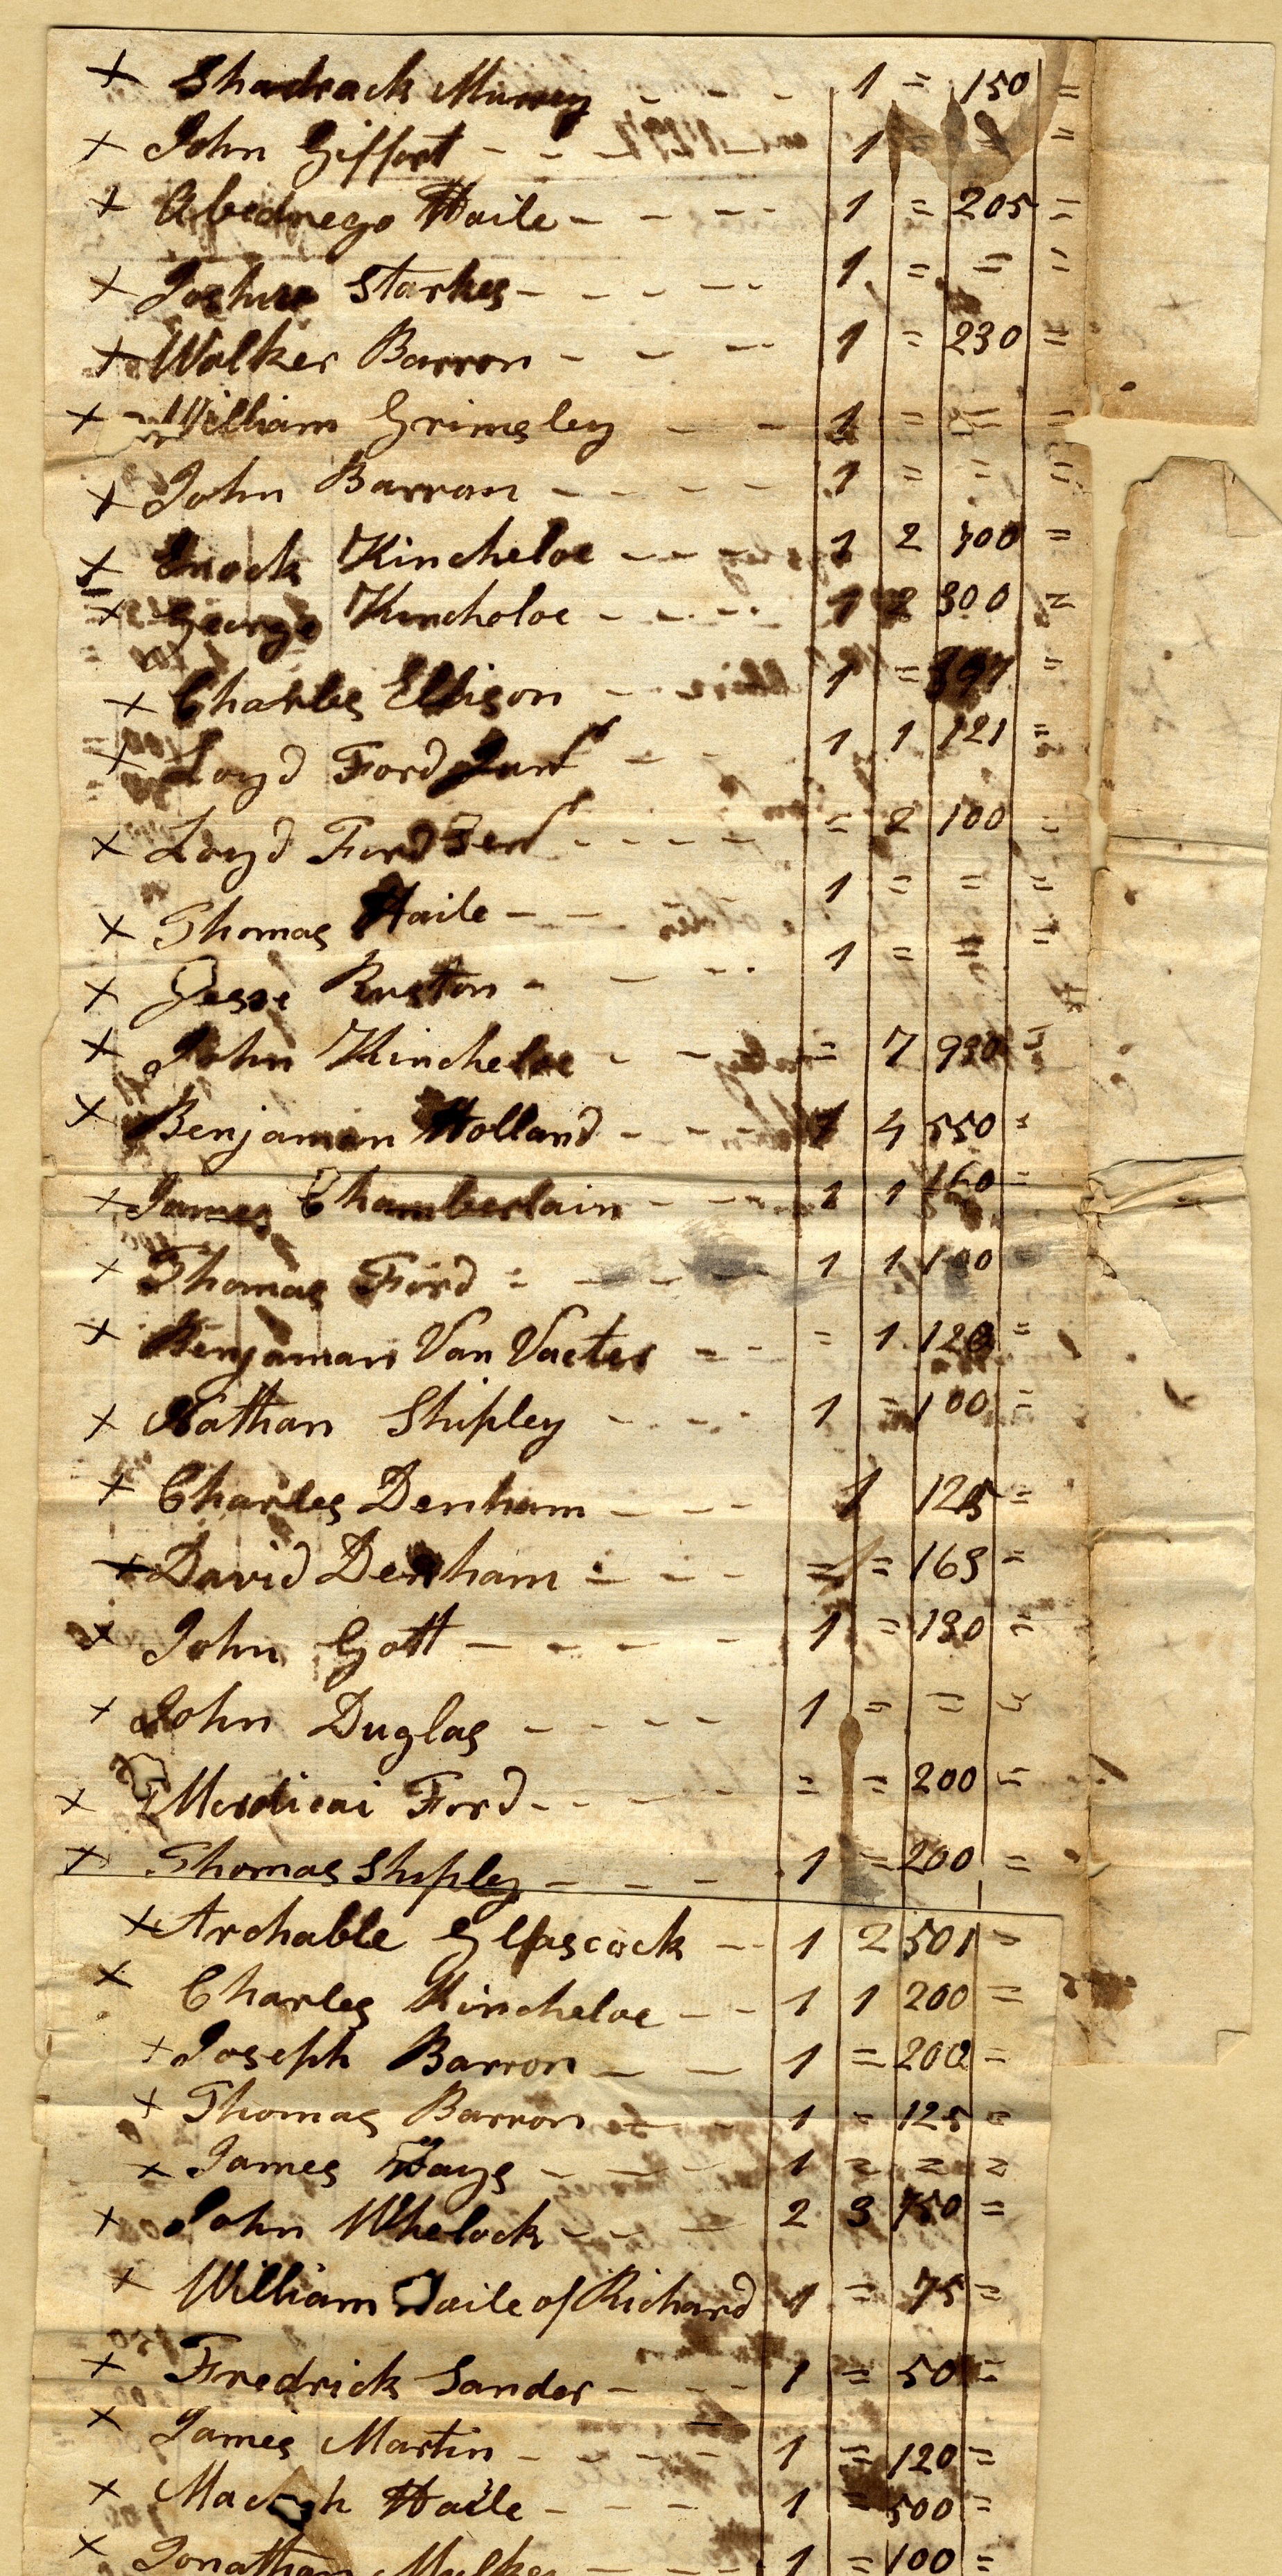 x Shadrack Murrey - - - 1 = 150 =
x John Giffort - - - 1 = = =
x Abednego Haile - - - - 1 = 205 =
x Joshua Starkes - - - - 1 = = =
x Walker Barron - - - 1 = 230 =
x William Grimsley - - 1 = = =
x John Barron - - - - 1 = = =
x Enock Kincheloe - - - 1 2 400 =
x George Kincheloe - - - 1 2 300 =
x Charles Ellison - - 1 = 397 =
x Loyd Ford Junr - - 1 1 121 =
x Loyd Ford Senr - - - - = 2 100 =
x Thomas Haile - - - 1 = = =
x Jesse Ruston - - - 1 = = =
x John Kincheloe - - = 7 930 =
x Benjaman Holland - - - 1 4 550 =
x James Chamberlain - - - 1 1 160 =
x Thomas Ford - - - 1 1 100 =
x Benjaman Van Vacter - - = 1 120 =
x Nathan Shipley - - - 1 = 100 =
x Charles Denham - - - 1 125 =
x David Denham - - - = = 165 =
x John Gott - - - - 1 = 130 =
x John Duglas - - - - 1 = = =
x Mordicai Ford - - - - = = 200 =
x Thomas Shipley - - - - 1 = 200 =
x Archable Glascock - - 1 2 501 =
x Charles Kincheloe - - 1 1 200 =
x Joseph Barron - - 1 = 200 =
x Thomas Barron - - - 1 = 125 =
x James Hays - - - 1 = = =
x John Whelock - - - 2 3 450 =
x William Haile of Richard 1 = 75 =
x Fredrick Sander - - - 1 = 50 =
x James Martin - - - - 1 = 120 =
x Haile - - - 1 = 500 =
x Jonathan Mulkey - - - 1 = 100 =